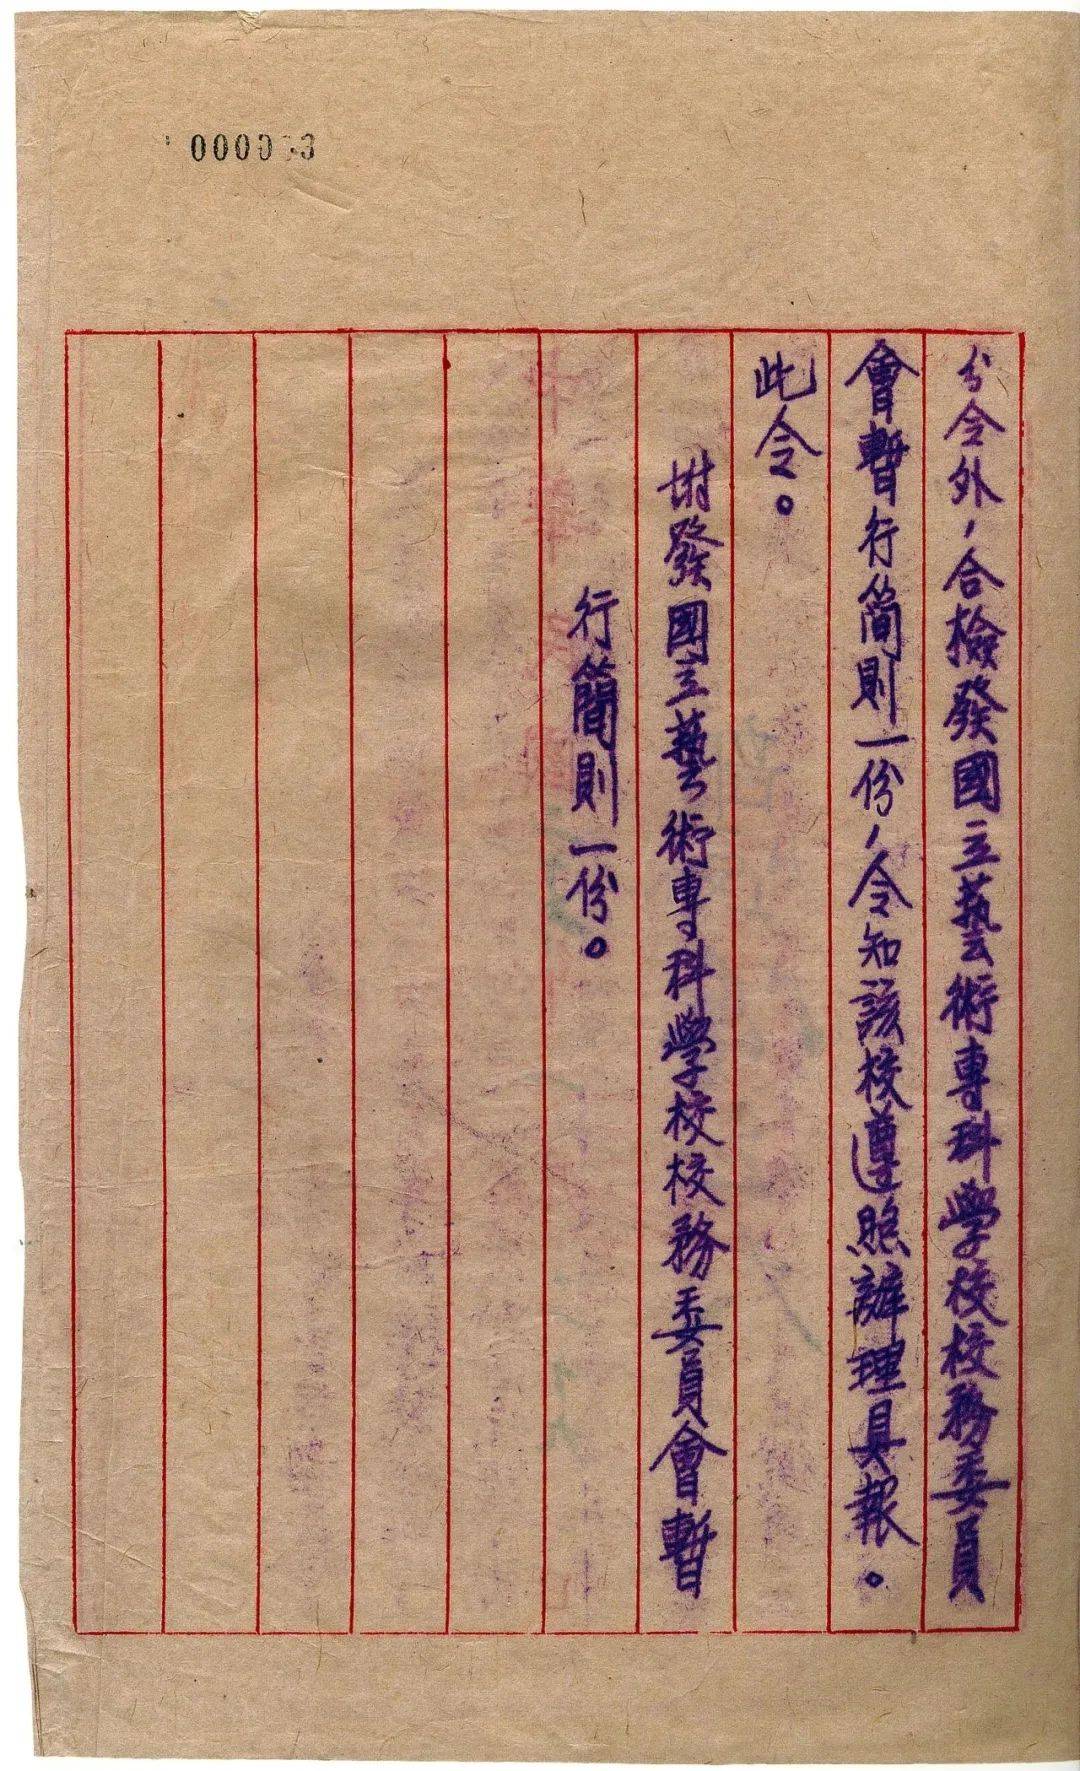 分令外，合檢發國立藝術專科學校校務委員
會暫行简則一份，令知該校遵照辦理具報。
此令。
坿發國立藝術專科學校校務委員會暫
行簡則一份。